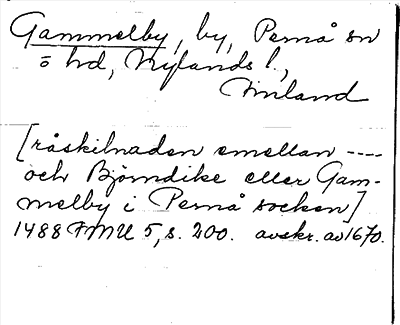 Gammelby, by, Pernå sn
ö hd, Nylands l.,
Finland
[råskilnaden emellan ----
och Björndike eller Gam-
melby i Pernå socken]
1488 FMU 5, s. 200. avskr. av 1670.